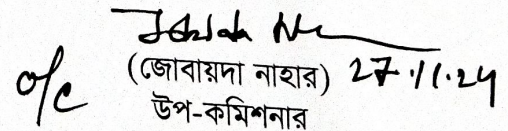 o/c (জোবায়দা নাহার) 27.11.24
উপ-কমিশনার